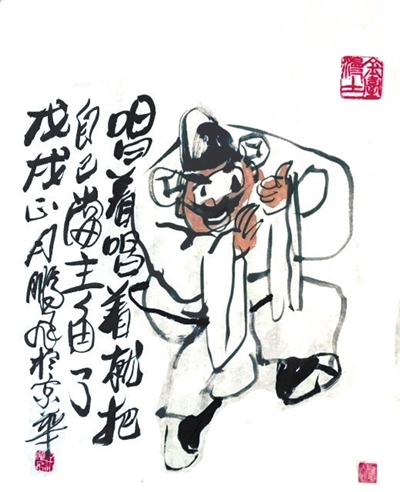 唱着唱着就把
自己当主角了
戊戌正月鹏程於京华